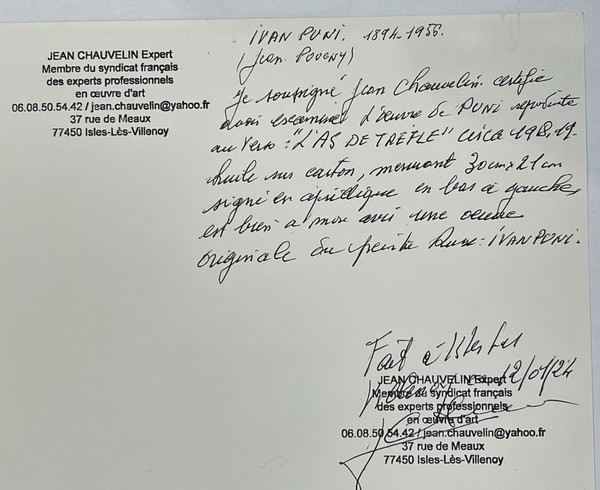 JEAN CHAUVELIN Expert
Membre du syndicat français
des experts professionnels
en œuvre d'art
06.08.50.54.42 / jean.chauvelin@yahoo.fr
37 rue de Meaux
77450 Isles-Lès-Villenoy
IVAN PUNI. 1894-1956.
(Jean Pougny)
Je soussigné Jean Chauvelin certifie
avoir examiné l'œuvre de PUNI reproduite
au verso: "L'AS DE TREFLE" circa
huile sur carton, mesurant 30 cm x 21 cm
signé en cyrillique en bas à gauche,
est bien a mon avis une œuvre
originale du peintre Russe: IVAN PUNI.
Fait à Isles Les
12/01/24
JEAN CHAUVELIN Expert
Membre du syndicat français
des experts professionnels
en œuvre d'art
06.08.50.54.42 / jean.chauvelin@yahoo.fr
37 rue de Meaux
77450 Isles-Lès-Villenoy